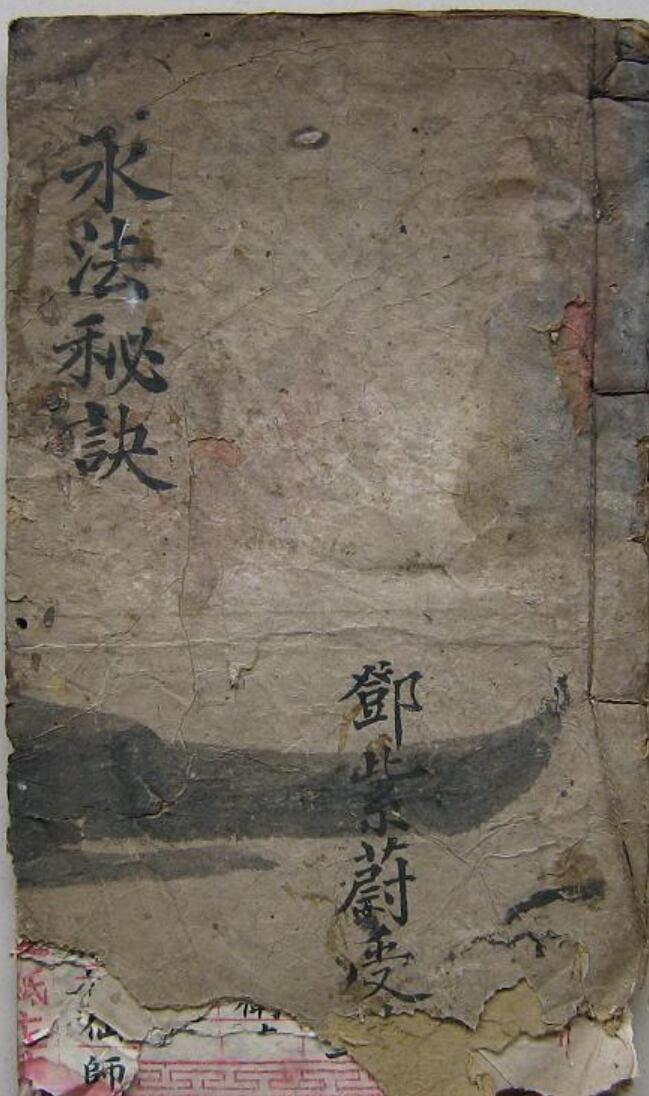 鄧紫蔚受
永法秘訣
仙師